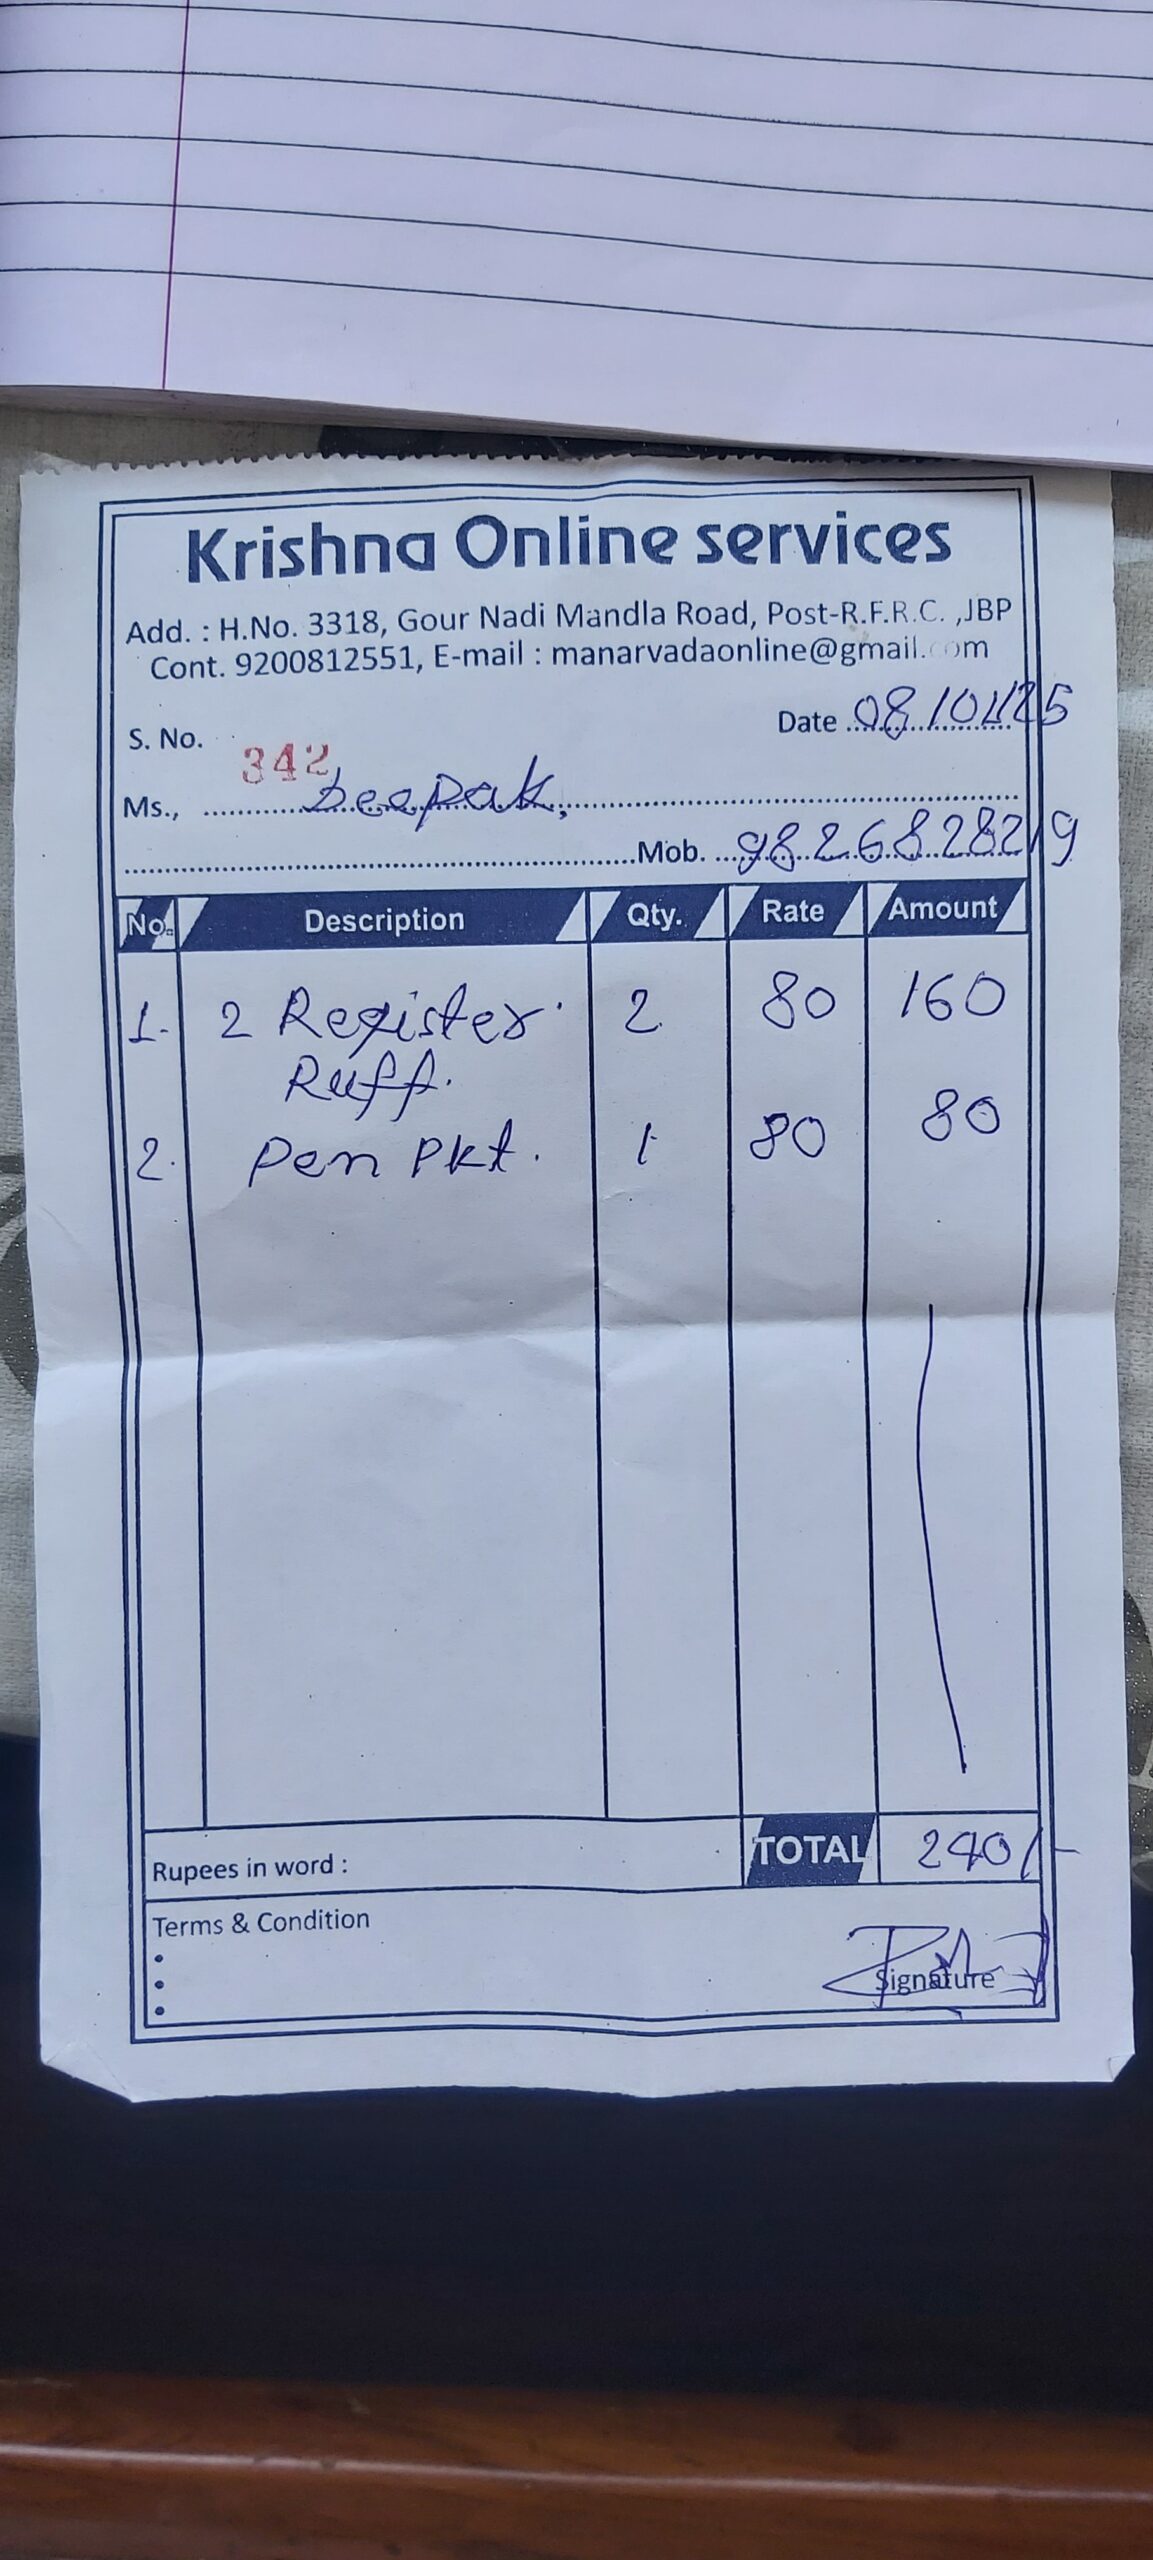 Krishna Online services
Add. : H.No. 3318, Gour Nadi Mandla Road, Post-R.F.R.C. ,JBP
Cont. 9200812551, E-mail : manarvadaonline@gmail.com
S. No. 342 Date 08/01/25
Ms., Deepak,
Mob. 9826828219
No. Description Qty. Rate Amount
1. 2 Register. 2 80 160
Ruff.
2. Pen Pkt. 1 80 80
Rupees in word : TOTAL 240/-
Terms & Condition
Signature